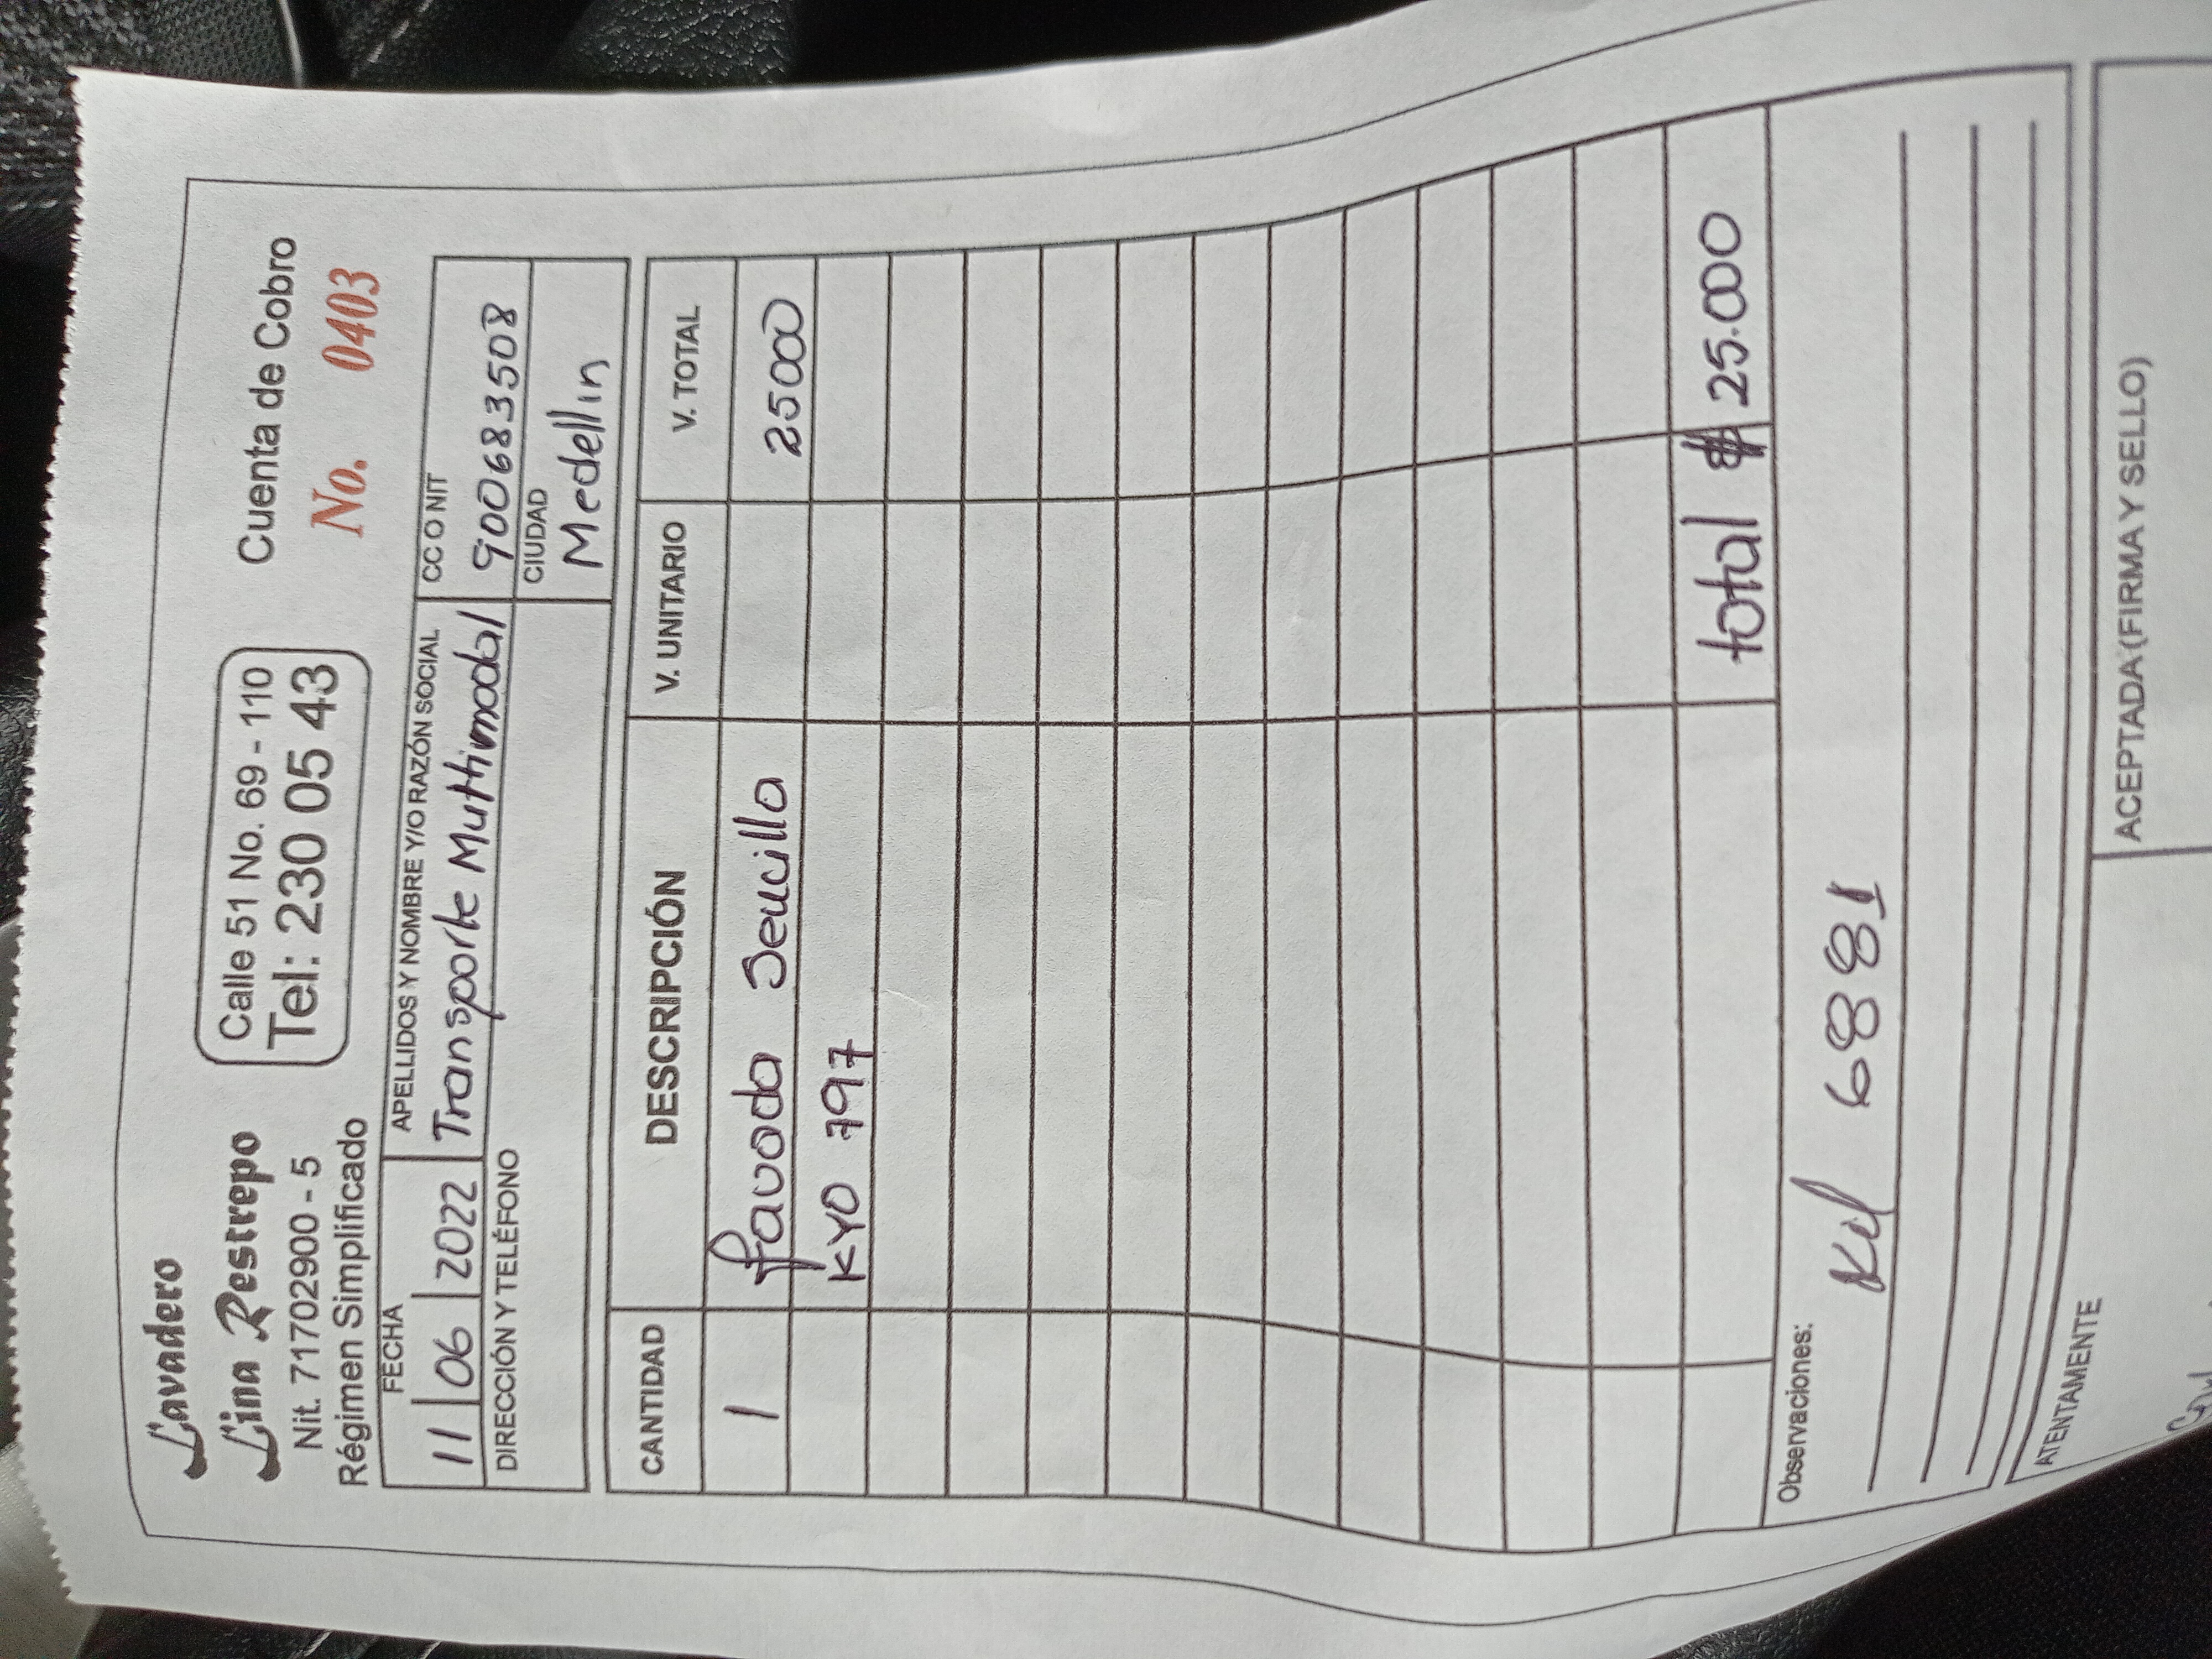 Lavadero
Lina Restrepo
Nit. 71702900 - 5
Régimen Simplificado
Calle 51 No. 69 - 110
Tel: 230 05 43
Cuenta de Cobro
No. 0403
FECHA
11 06 2022
APELLIDOS Y NOMBRE Y/O RAZÓN SOCIAL
Transporte Multimodal
CC O NIT
9006835508
DIRECCIÓN Y TELÉFONO
CIUDAD
Medellin
CANTIDAD DESCRIPCIÓN V. UNITARIO V. TOTAL
1 favada Sencilla 25000
KYO 797
total $ 25.000
Observaciones:
Kil 6881
ATENTAMENTE
ACEPTADA (FIRMA Y SELLO)